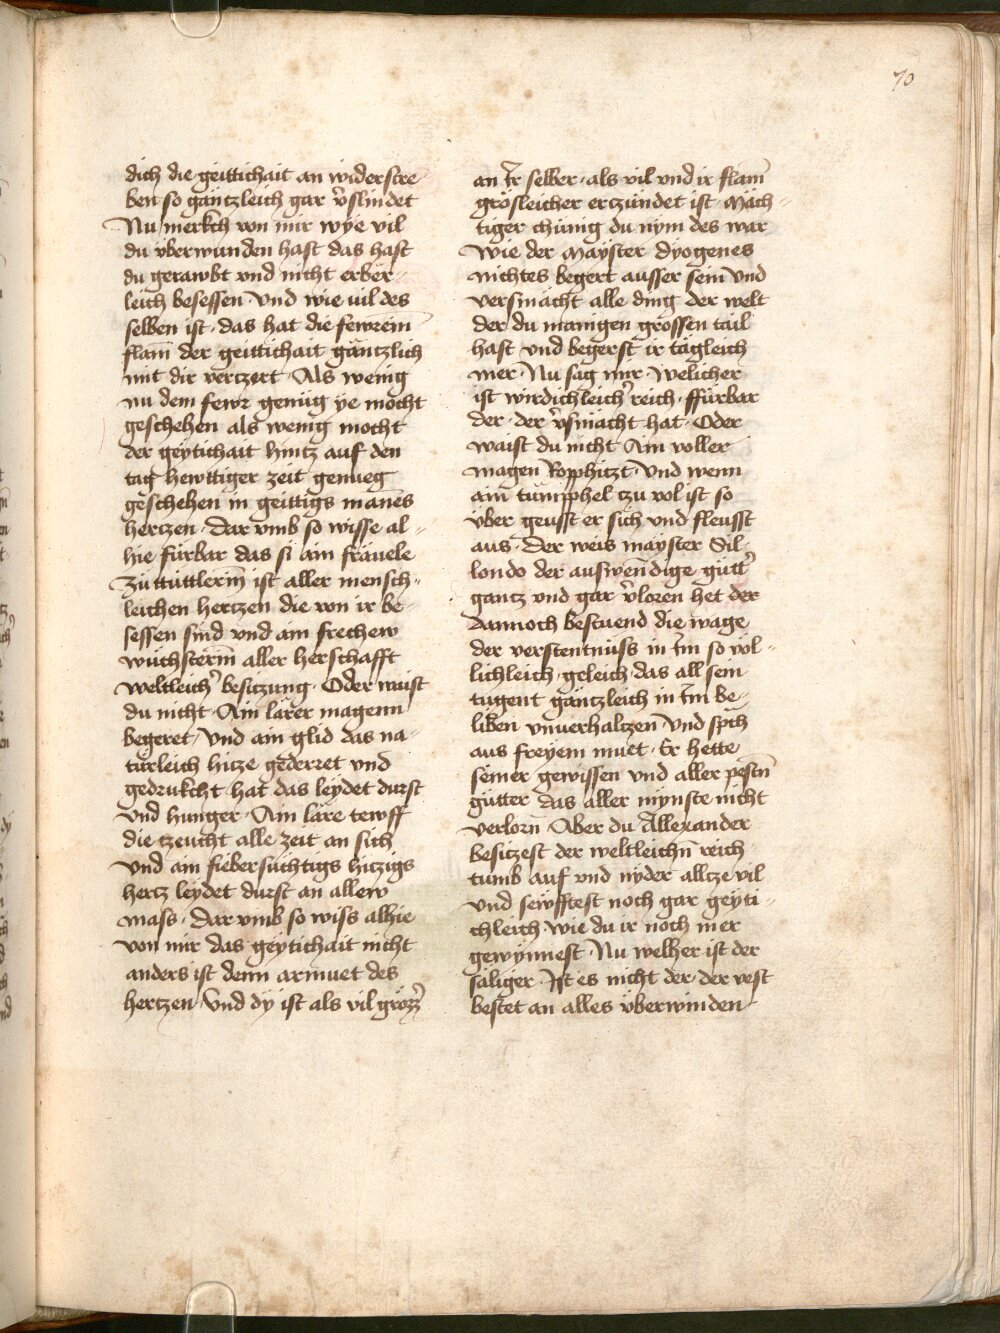 70
dich die geittichait an widerstre
ben so gäntzleich gar v̾slindet
Nu merkch von mir wye vil
du vberwunden hast das hast
du gerawbt vnd nicht erber-
leich besessen Vnd wie uil des
selben ist · das hat die fewrein
flam̄ der geittichait gäntzlich
mit dir vertzert · Als wenig
nu dem fewr genüg ye mocht
geschehen als wenig mocht
der geytichait hintz auf den
tag hewttiger zeit genueg
geschehen in geittigs manes
hertzen · Dar vmb so wisse al-
hie fürbar das si ain fräuele
zütüttlerin̄ ist aller mensch-
leichen hertzen die von ir be-
sessen sind vnd ain frechew
wüchsterin̄ aller herschafft
weltleich̾ besitzung · Oder waist
du nicht · Ain lärer magenn
begeret · Vnd ain glid das na-
türleich hitze gederret vnd
gedrukcht hat das leydet durst
Vnd hunger · Ain läre tewff
die tzeucht alle zeit an sich
Vnd ain fiebersüchtigs hitzigs
hertz leydet durst an allew
mass · Dar vmb so wiss alhie
von mir das geytichait nicht
anders ist denn armuet des
hertzen · Vnd dy ist als vil grözz̾
an Ir selber · als vil vnd ir flam̄
grösleicher ertzündet ist · Mäch-
tiger chünig du nym des war
wie der mayster dyogenes
nichtes begert ausser sein Vnd
versmächt alle ding der welt
der du manigen grossen tail
hast vnd begerst ir tägleich
mer · Nu sag mir welicher
ist wirdichleich̾ reich · ffürbar
der · der v̾smächt hat · Oder
waist du nicht Ain voller
magen Ropphitzt · Vnd wenn
ain tümpphel tzu vol ist so
vber geusst er sich vnd fleusst
aus · Der weis mayster Dil-
londo der auswendige gütt̾
gantz vnd gar v̾loren het der
dannoch bestuend die wage
der verstentnüss in Im so vol-
lichleich · geleich das all sein
tugent gäntzleich in Im be-
liben vnuerhaltzen Vnd sp̄ch
aus freyem muet · Er hette
seiner gewissen vnd aller pestn̄
gütter das aller mynste nicht
verlorn · Aber du Allexander
besitzest der weltleichn̄ reich
tumb auf vnd nyder alltze vil
Vnd sewfftest noch gar geyti-
chleich wie du ir noch mer
gewynnest · Nu welher ist der
säliger · Ist es nicht der · der vest
bestet an alles vberwinden